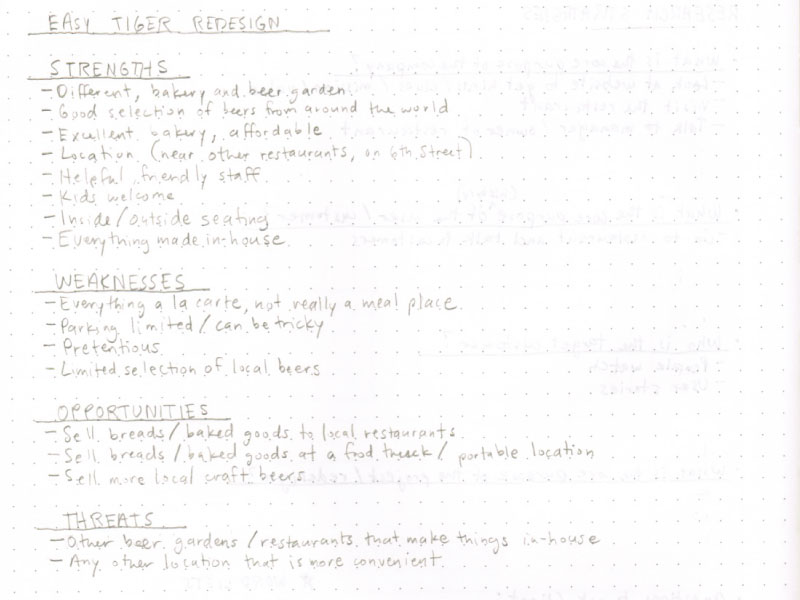 EASY TIGER REDESIGN
STRENGTHS
- Different, bakery and beer garden
- Good selection of beers from around the world
- Excellent bakery, affordable
- Location (near other restaurants, on 6th Street)
- Helpful, friendly staff
- Kids welcome
- Inside/outside seating
- Everything made in-house
WEAKNESSES
- Everything a la carte, not really a meal place
- Parking limited / can be tricky
- Pretentious
- Limited selection of local beers
OPPORTUNITIES
- Sell breads/baked goods to local restaurants
- Sell breads/baked goods at a food truck / portable location
- Sell more local craft beers
THREATS
- Other beer gardens / restaurants that make things in-house
- Any other location that is more convenient